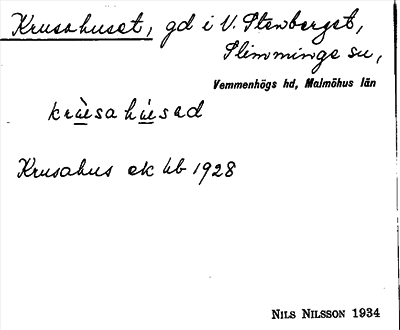 Krusahuset, gd i V. Stenberget,
Slimminge sn,
Vemmenhögs hd, Malmöhus län
krùsahúsad
Krusahus ek kb 1928
NILS NILSSON 1934